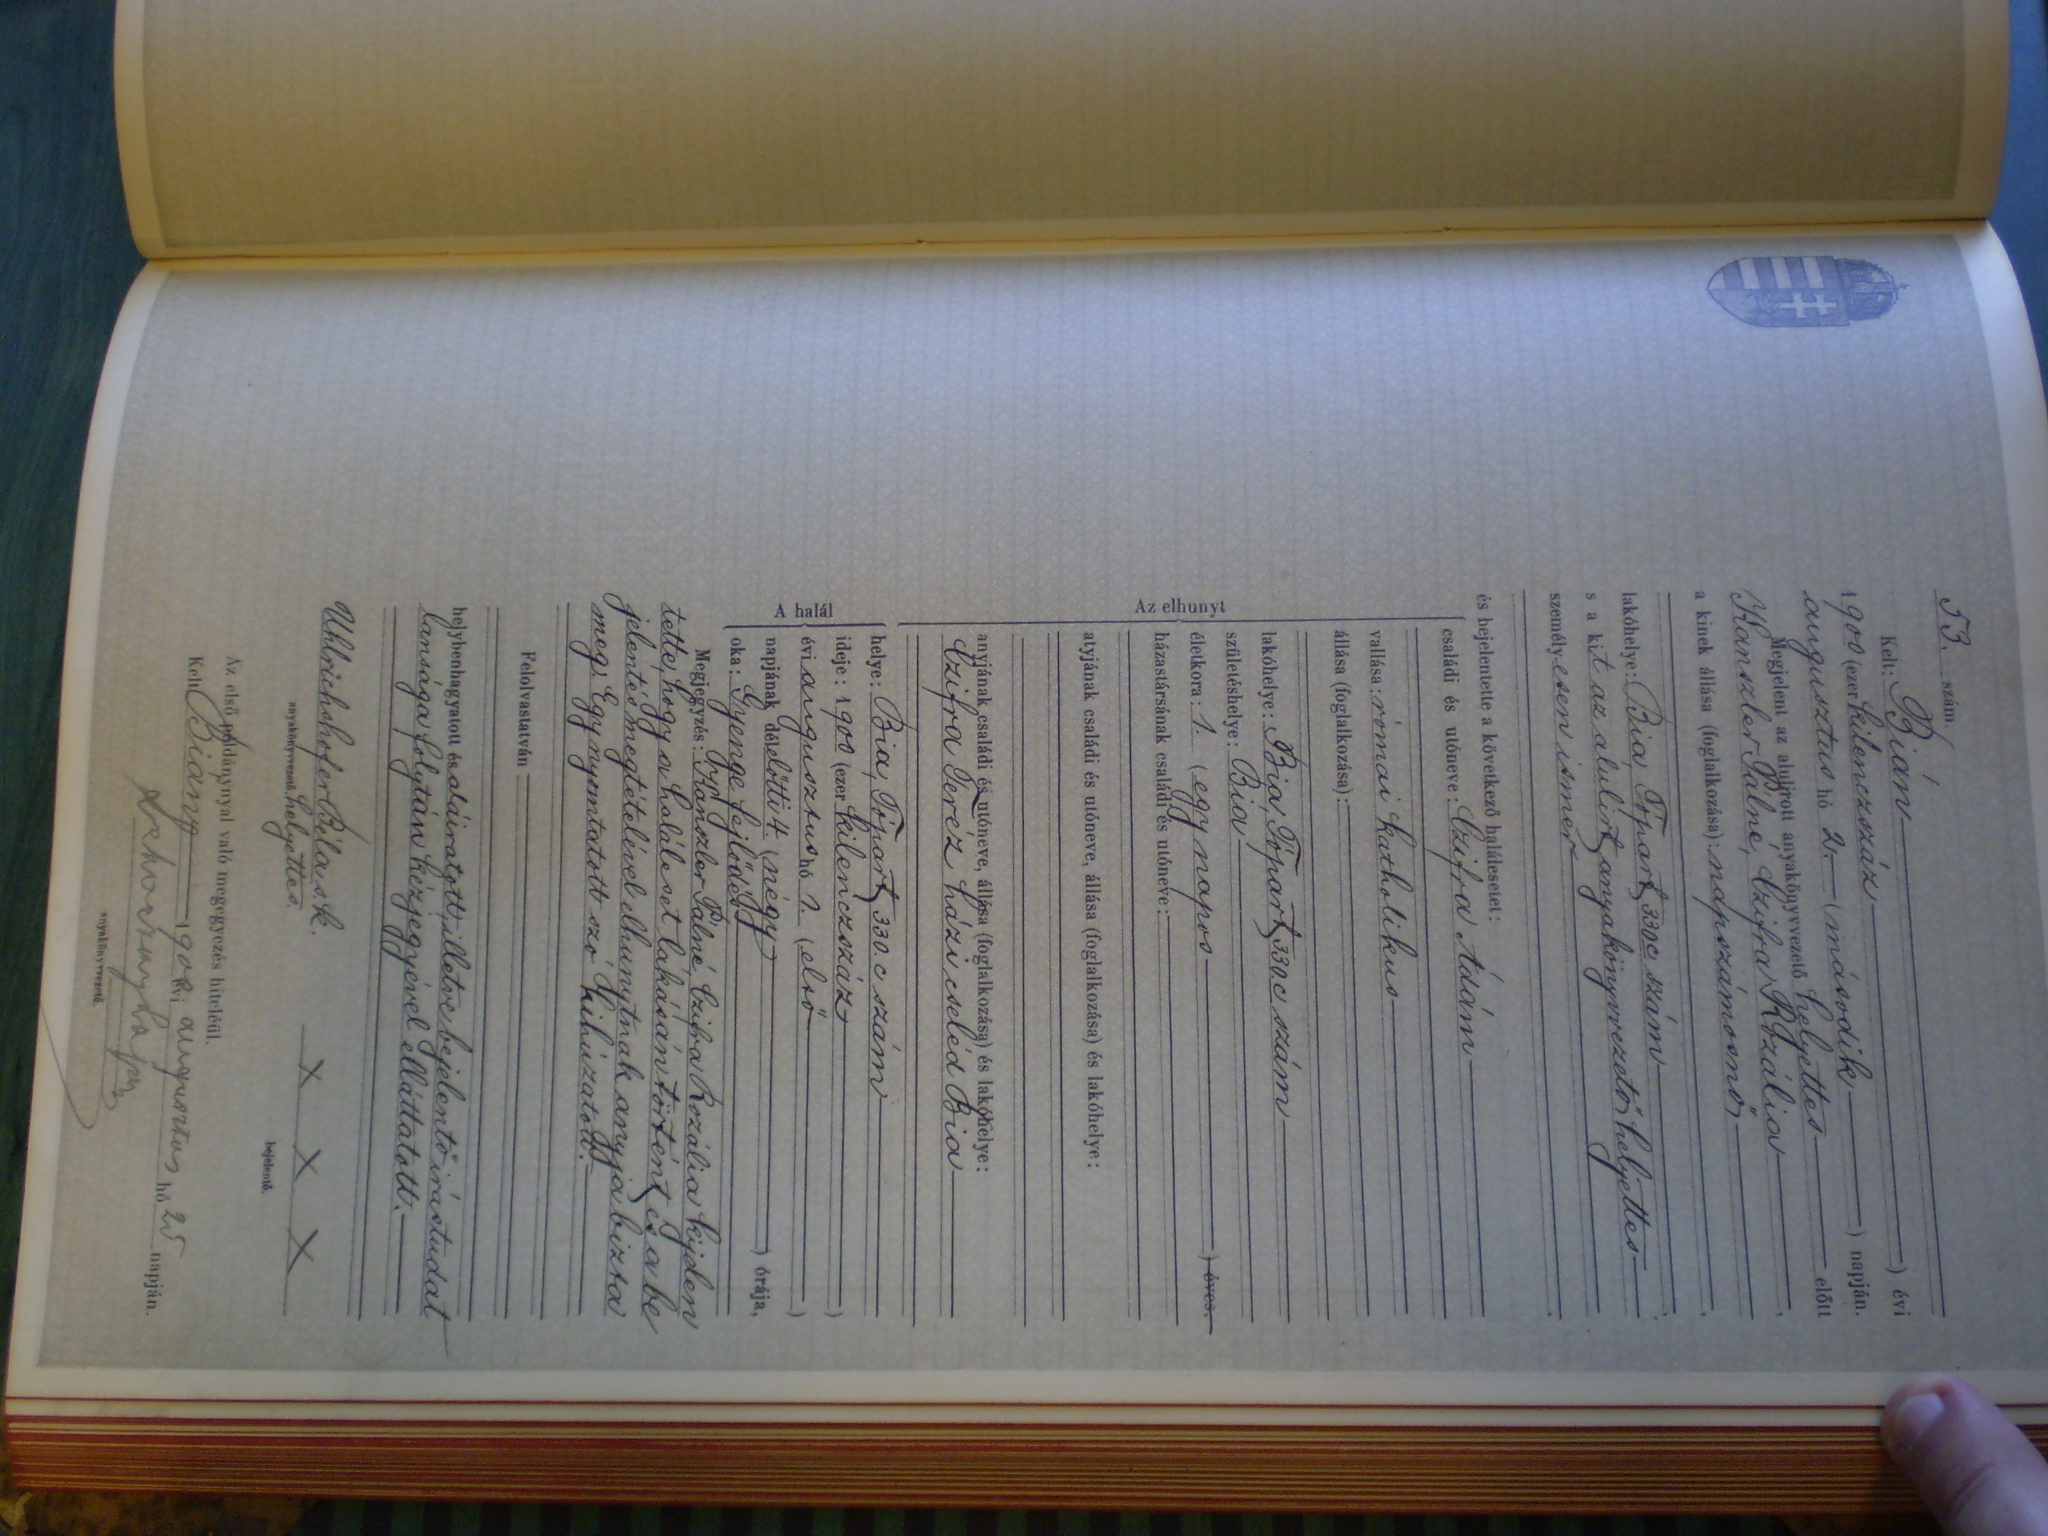 53. szám.
Kelt: Bián ) évi
1900 (ezer kilenczszáz ) napján.
augusztus hó 2. (második előtt
Megjelent az alulirott anyakönyvvezető helyettes
Kanszler Pálné, Czifra Rozália ,
a kinek állása (foglalkozása): napszámosnő ,
lakóhelye: Bia, Tópart 330c szám ,
s a kit az alulirt anyakönyvvezető helyettes
személyesen ismer .
és bejelentette a következő halálesetet:
Az elhunyt
családi és utóneve: Czifra Ádám
vallása: római katholikus
állása (foglalkozása):
lakóhelye: Bia Tópart 330c szám
születéshelye: Bia
életkora: 1. (egy napos ) éves.
házastársának családi és utóneve:
atyjának családi és utóneve, állása (foglalkozása) és lakóhelye:
anyjának családi és utóneve, állása (foglalkozása) és lakóhelye:
Czifra Teréz házi cseléd Bia
A halál
helye: Bia, Tópart 330.c szám
ideje: 1900 (ezer kilenczszáz )
évi augusztus hó 1. (első )
napjának délelőtti 4. (négy ) órája,
oka: Gyenge fejlődés
Megjegyzés: Kanszler Pálné, Czifra Rozália kijelen
tette, hogy a haláleset lakásán történt és a be
jelentés megtételével elhunytnak anyja bizta
meg. Egy nyomtatott szó kihúzatott.
Felolvastatván
helybenhagyatott és aláiratott, illetve bejelentő irástudat
lansága folytán kézjegyével elláttatott.
Uhlrichshofer Béla s.k.
anyakönyvvezető helyettes.
x x x
bejelentő.
Az első példánynyal való megegyezés hiteléül.
Kelt Bián 190 évi augusztus hó 25 napján.
anyakönyvvezető.